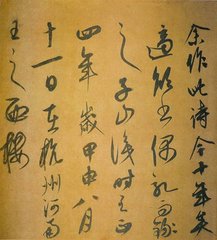 余作此詩今十年矣
適偶
之子山識時至正
四年歲甲申八月
十一日在杭州河南
王之西樓